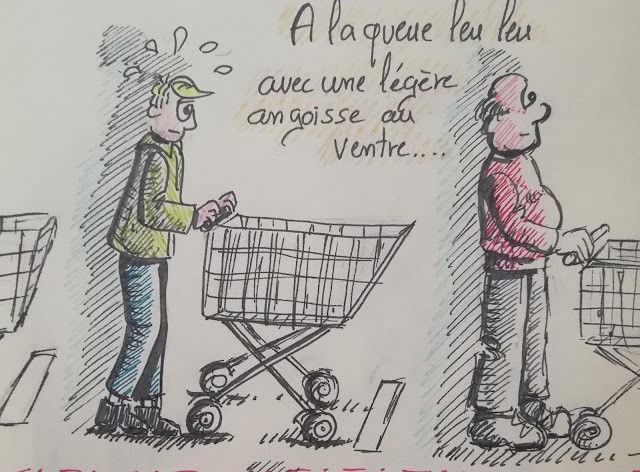 A la queue leu leu
avec une légère
angoisse au
ventre....